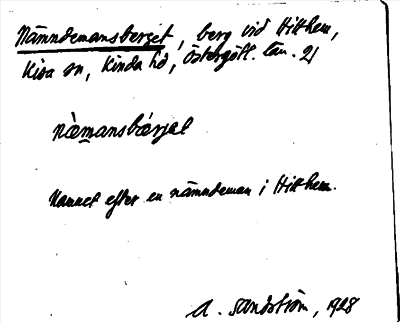 Nämndemansberget, berg vid Hithem,
Kisa sn, Kinda hd, Östergötl. län. 21
næ̀mansbærjet
Namnet efter en nämndeman i Hithem.
A. Sandström, 1928